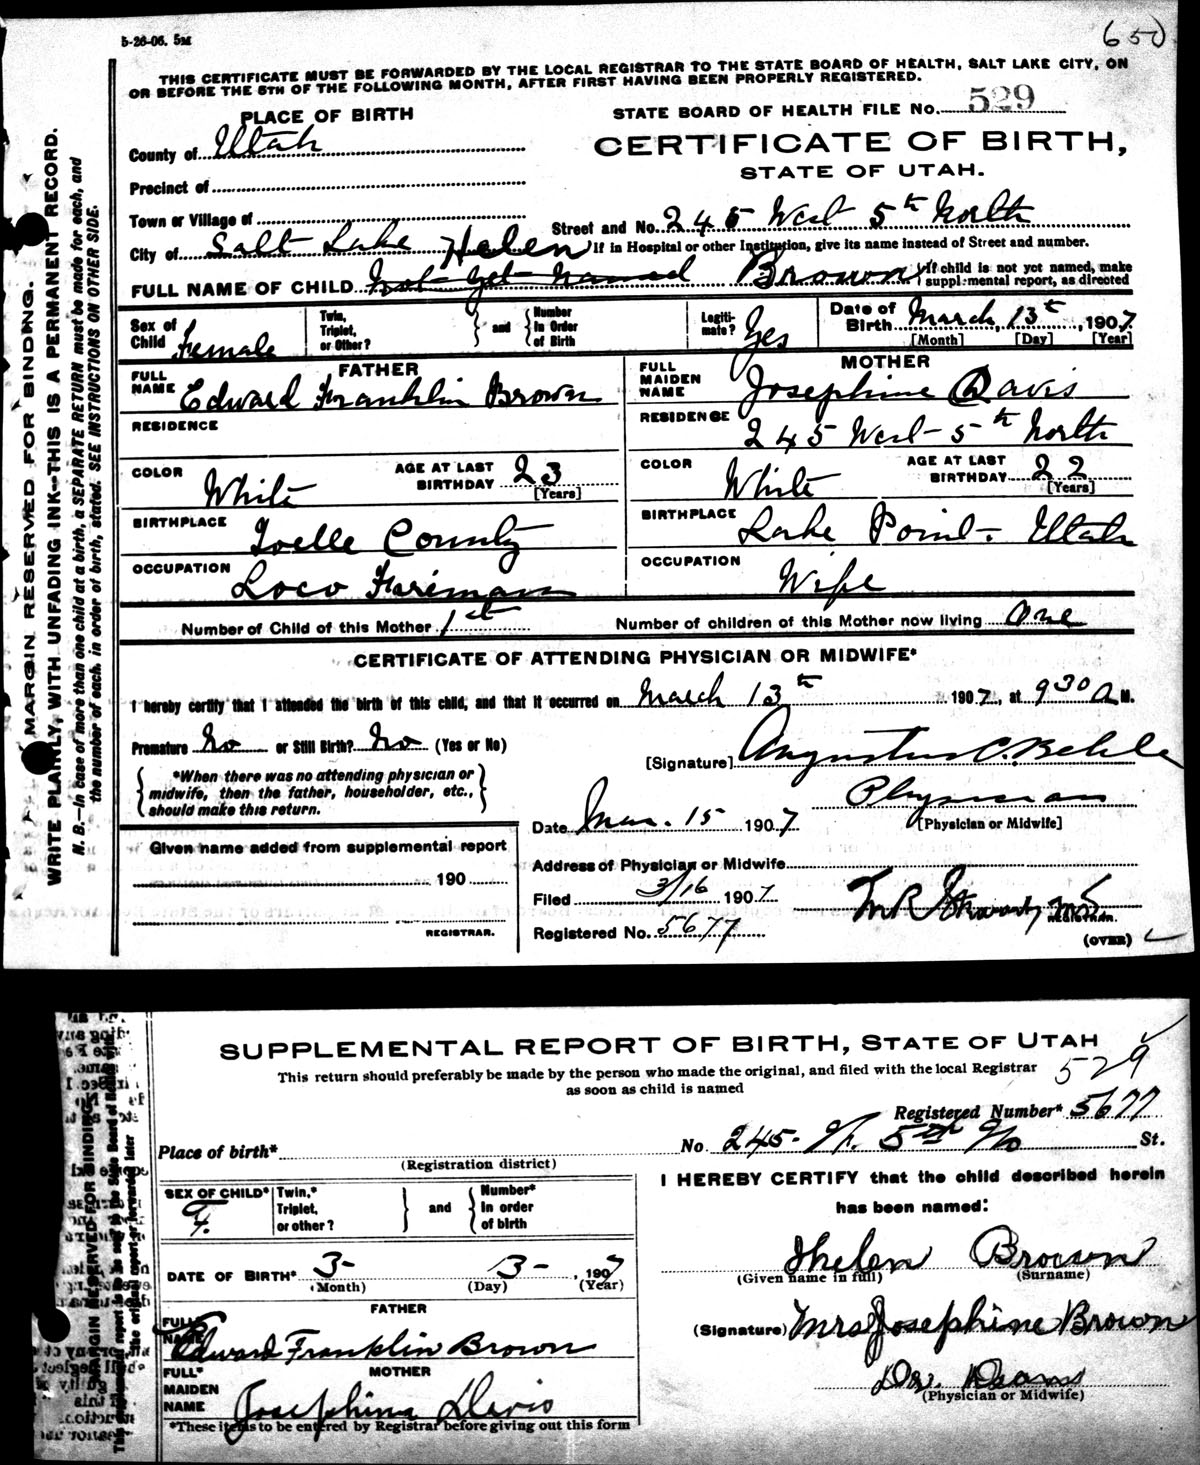 5-26-06. 5M
650
THIS CERTIFICATE MUST BE FORWARDED BY THE LOCAL REGISTRAR TO THE STATE BOARD OF HEALTH, SALT LAKE CITY, ON
OR BEFORE THE 5TH OF THE FOLLOWING MONTH, AFTER FIRST HAVING BEEN PROPERLY REGISTERED.
MARGIN RESERVED FOR BINDING.
WRITE PLAINLY, WITH UNFADING INK—THIS IS A PERMANENT RECORD.
N. B.—In case of more than one child at a birth, a SEPARATE RETURN must be made for each, and
the number of each, in order of birth, stated. SEE INSTRUCTIONS ON OTHER SIDE.
PLACE OF BIRTH
STATE BOARD OF HEALTH FILE NO. 529
County of Utah
CERTIFICATE OF BIRTH,
STATE OF UTAH.
Precinct of
Town or Village of
Street and No. 245 West 5th North
City of Salt Lake
If in Hospital or other Institution, give its name instead of Street and number.
Helen
FULL NAME OF CHILD Not yet named Brown
If child is not yet named, make
supplemental report, as directed
Sex of Child Female
Twin, Triplet, or Other? and Number In Order of Birth
Legitimate? Yes
Date of Birth March, 13th, 1907
[Month] [Day] [Year]
FATHER
FULL NAME Edward Franklin Brown
MOTHER
FULL MAIDEN NAME Josephine Davis
RESIDENCE
RESIDENCE 245 West 5th North
COLOR White AGE AT LAST BIRTHDAY 23 [Years]
COLOR White AGE AT LAST BIRTHDAY 22 [Years]
BIRTHPLACE Toelle County
BIRTHPLACE Lake Point - Utah
OCCUPATION Loco Fireman
OCCUPATION Wife
Number of Child of this Mother 1st
Number of children of this Mother now living One
CERTIFICATE OF ATTENDING PHYSICIAN OR MIDWIFE*
I hereby certify that I attended the birth of this child, and that it occurred on March 13th 1907, at 9 30 A M.
Premature No or Still Birth? No (Yes or No)
*When there was no attending physician or
midwife, then the father, householder, etc.,
should make this return.
[Signature] Augustus C. Behle
Physician
[Physician or Midwife]
Date Mar. 15 1907
Given name added from supplemental report
190
REGISTRAR.
Address of Physician or Midwife
Filed 3/16 1907
REGISTRAR.
Registered No. 5677
(OVER)
SUPPLEMENTAL REPORT OF BIRTH, STATE OF UTAH
This return should preferably be made by the person who made the original, and filed with the local Registrar
as soon as child is named
529
Registered Number* 5677
Place of birth*
(Registration district)
No. 245- W. 5th No St.
SEX OF CHILD* F.
Twin,* Triplet, or other? and Number* In order of birth
I HEREBY CERTIFY that the child described herein
has been named:
DATE OF BIRTH* 3- 3-, 1907
(Month) (Day) (Year)
Thelen Brown
(Given name in full) (Surname)
FATHER
FULL NAME Edward Franklin Brown
(Signature) Mrs Josephine Brown
MOTHER
FULL* MAIDEN NAME Josephine Davis
(Physician or Midwife)
*These items to be entered by Registrar before giving out this form